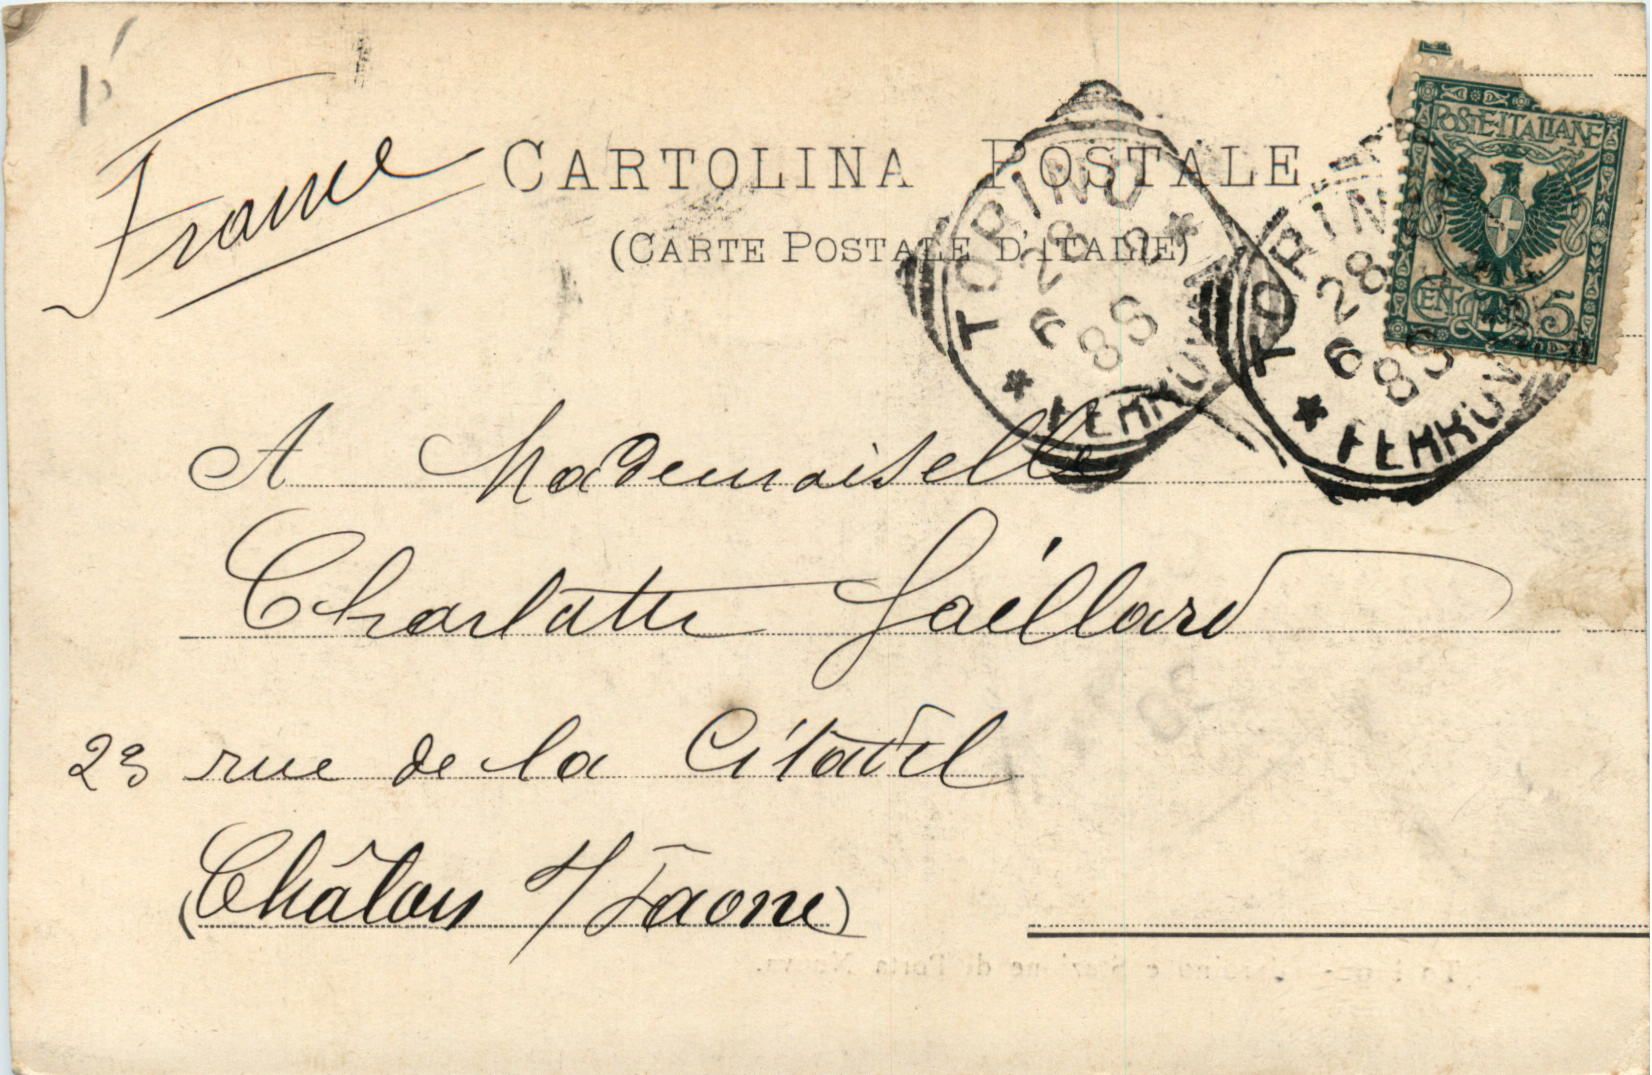 France
CARTOLINA POSTALE
(CARTE POSTALE D'ITALIE)
POSTE ITALIANE
CENT. 5
TORINO
28
6
8S
FERROV
TORINO
28
6
8S
FERROV
A Mademoiselle
Charlotte Gaillard
23 rue de la Citadel
(Châlon s/ Saone)